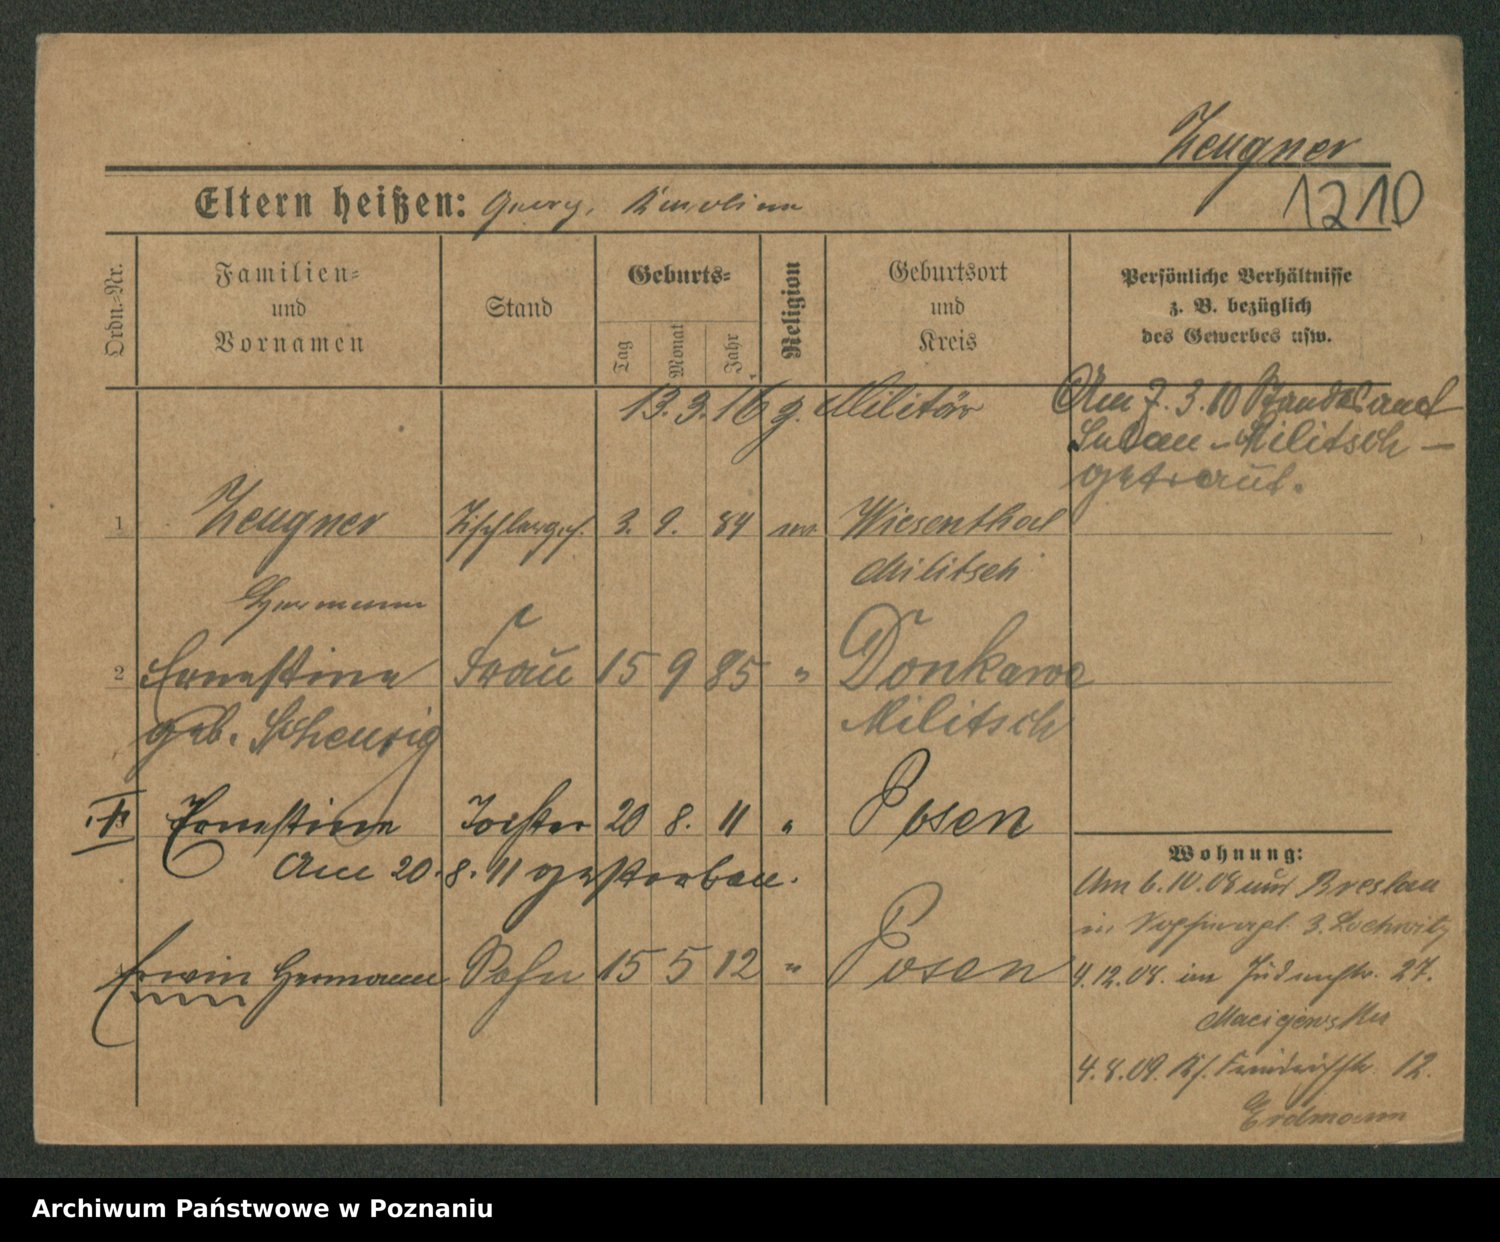 Zeugner
1210
Eltern heißen: Georg, Karoline
Ordn.-Nr.
Familien-
und
Vornamen
Stand
Geburts-
Tag
Monat
Jahr
Religion
Geburtsort
und
Kreis
Persönliche Verhältnisse
z. B. bezüglich
des Gewerbes usw.
13. 3. 16 z. Militär
Am 7. 3. 10 Standesamt
Sulau - Militsch -
getraut.
1 Zeugner 3. 9. 84 Wiesenthal
Militsch
Hermann
2 Ernestine Frau 15 9 85 " Donkawe
geb. Scheurig Militsch
Ernestine Tochter 20 8. 11 " Posen
Am 20. 8. 11 gestorben.
Erwin Hermann Sohn 15 5 12 " Posen
Wohnung:
Am 6. 10. 08 aus Breslau
in
4. 12. 08. im Judenstr. 27.
Maciejewski
4. 8. 09. Friedrichstr. 12.
Erdmann
Archiwum Państwowe w Poznaniu